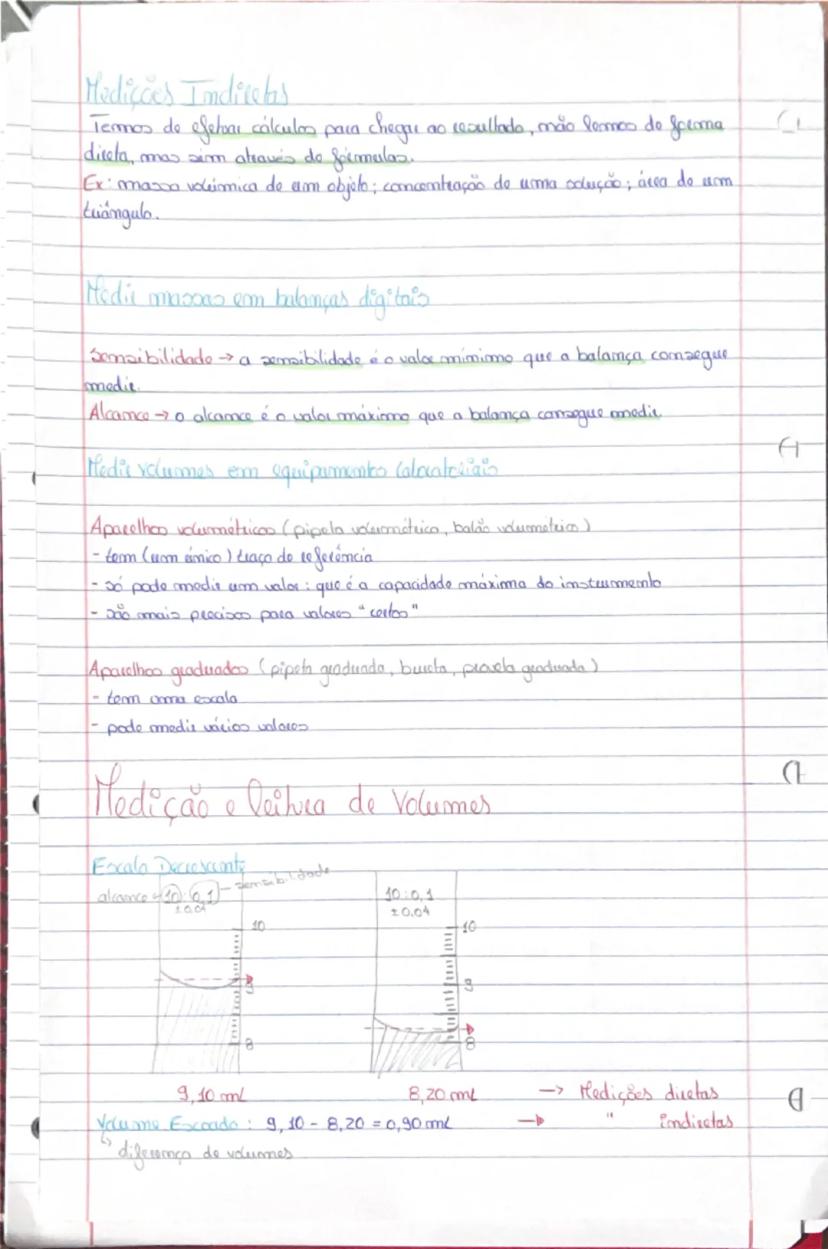 Medições Indiretas
Temos de efetuar cálculos para chegar ao resultado, não lemos de forma
direta, mas sim através de fórmulas.
Ex: massa volúmica de um objeto; concentração de uma solução; área de um
triângulo.
Medir massas em balanças digitais
Sensibilidade → a sensibilidade é o valor mínimo que a balança consegue
medir.
Alcance → o alcance é o valor máximo que a balança consegue medir
Medir volumes em equipamento laboratoriais
Aparelhos volumétricos (pipeta volumétrica, balão volumétrico)
- tem (um único) traço de referência
- só pode medir um valor: que é a capacidade máxima do instrumento
- são mais precisos para valores "certos"
Aparelhos graduados (pipeta graduada, bureta, proveta graduada)
- tem uma escala
- pode medir vários valores
Medição e leitura de Volumes
Escala Decrescente
alcance ← 10:0,1 — sensibilidade
±0,04
10
9
8
10:0,1
±0,04
10
9
8
9,10 mL 8,20 mL → Medições diretas
Volume Escoado: 9,10 - 8,20 = 0,90 mL → " indiretas
↳ diferença de volumes